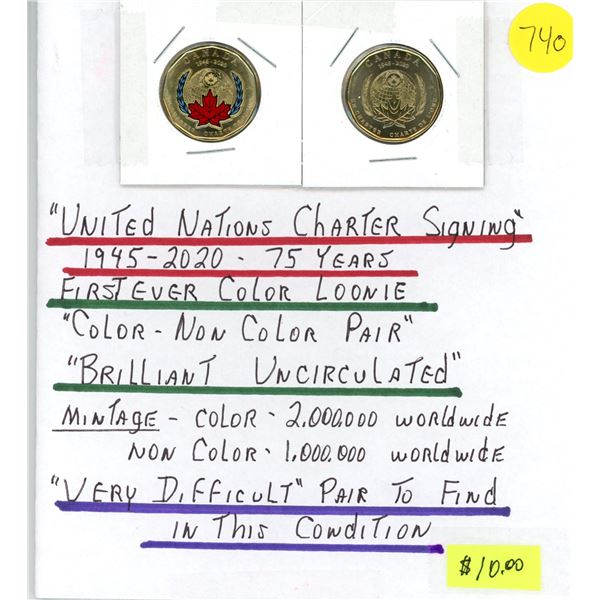 740
CANADA
1945-2020
CHARTER CHARTE
CANADA
1945-2020
CHARTER CHARTE
"UNITED NATIONS CHARTER SIGNING"
1945-2020 - 75 YEARS
FIRST EVER COLOR LOONIE
"COLOR - NON COLOR PAIR"
"BRILLIANT UNCIRCULATED"
MINTAGE - COLOR - 2,000.000 WORLDWIDE
NON COLOR - 1,000.000 WORLDWIDE
"VERY DIFFICULT" PAIR TO FIND
IN THIS CONDITION
$10.00